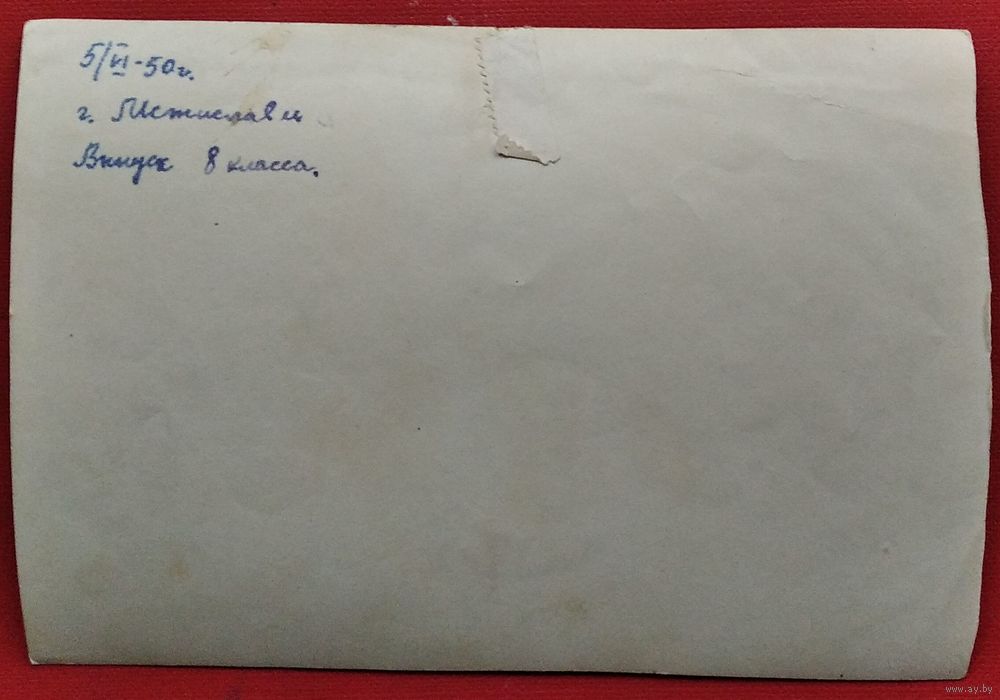 5/VI-50г.
г. Мстиславль
Выпуск 8 класса.
www.ay.by